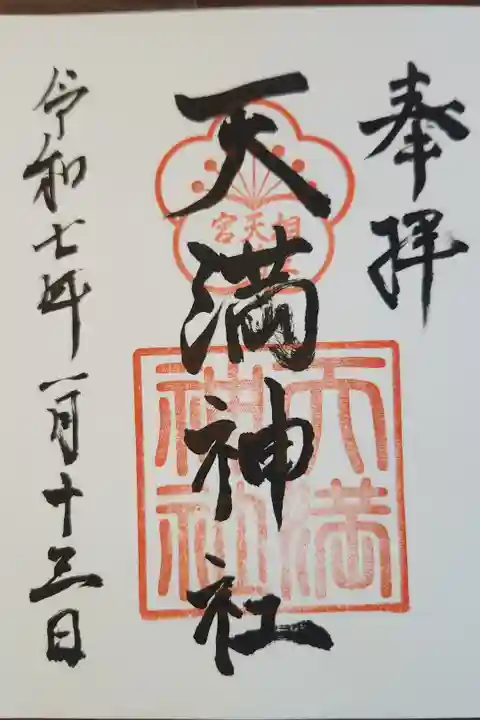 奉拝
天満神社
令和七年一月十三日
相天宮
天満神社